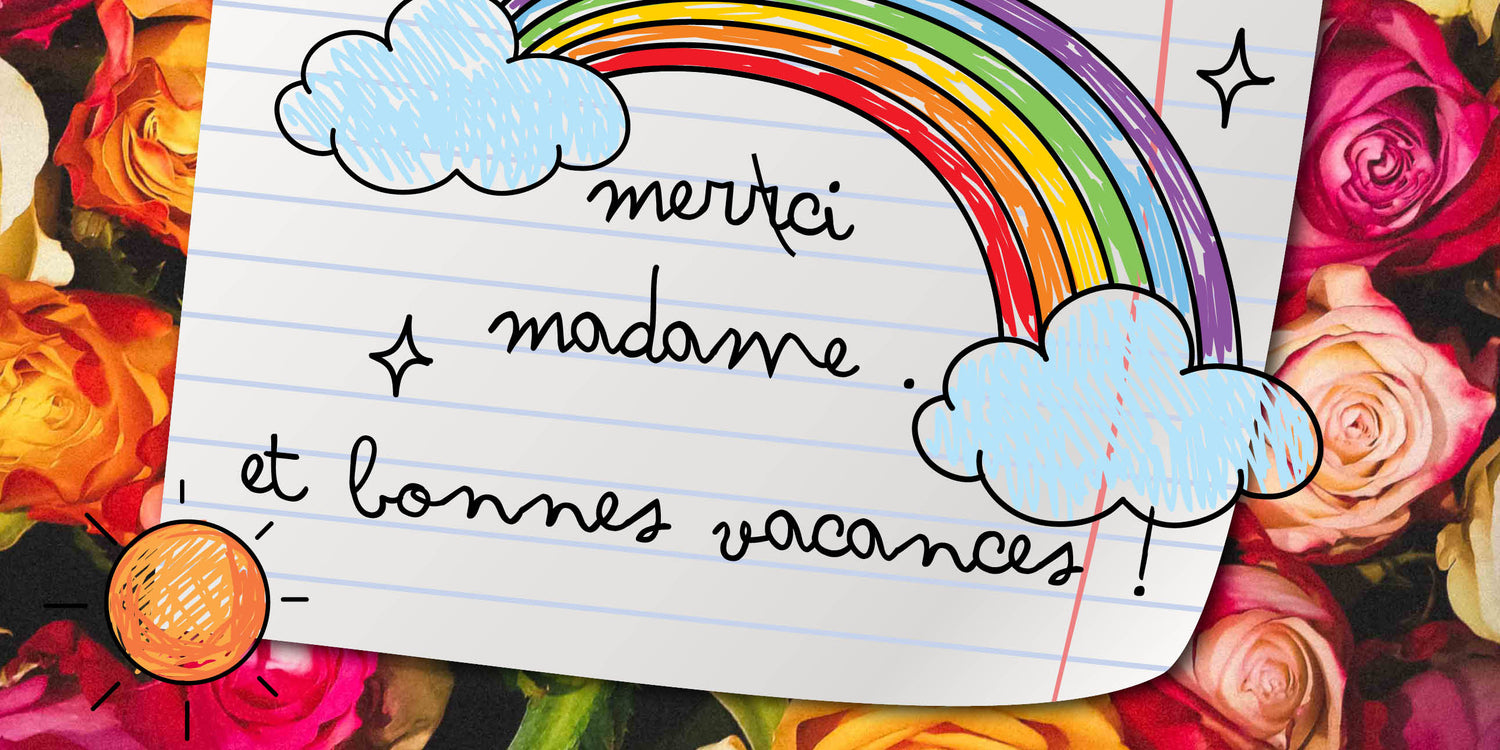 merci
madame .
et bonnes vacances !